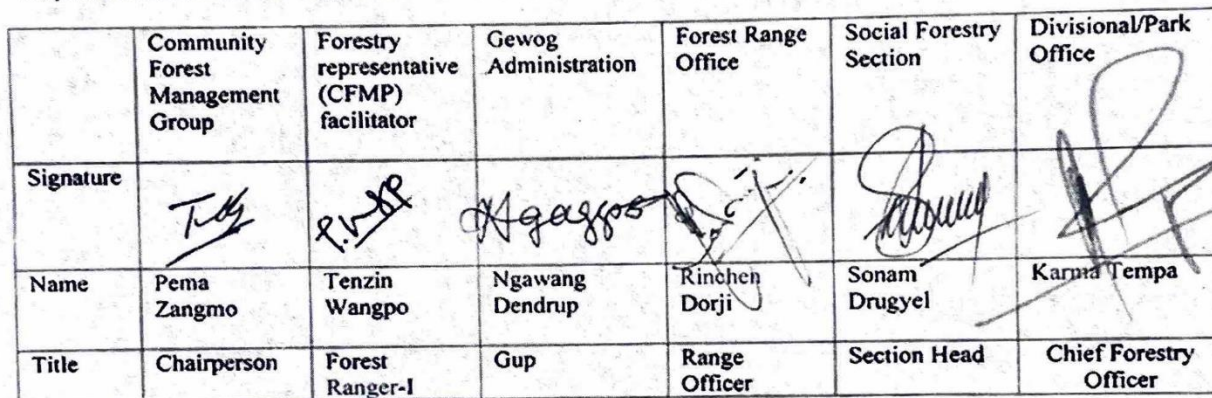 Community Forest Management Group
Forestry representative (CFMP) facilitator
Gewog Administration
Forest Range Office
Social Forestry Section
Divisional/Park Office
Signature
Name
Pema Zangmo
Tenzin Wangpo
Ngawang Dendrup
Rinchen Dorji
Sonam Drugyel
Karma Tempa
Title
Chairperson
Forest Ranger-I
Gup
Range Officer
Section Head
Chief Forestry Officer